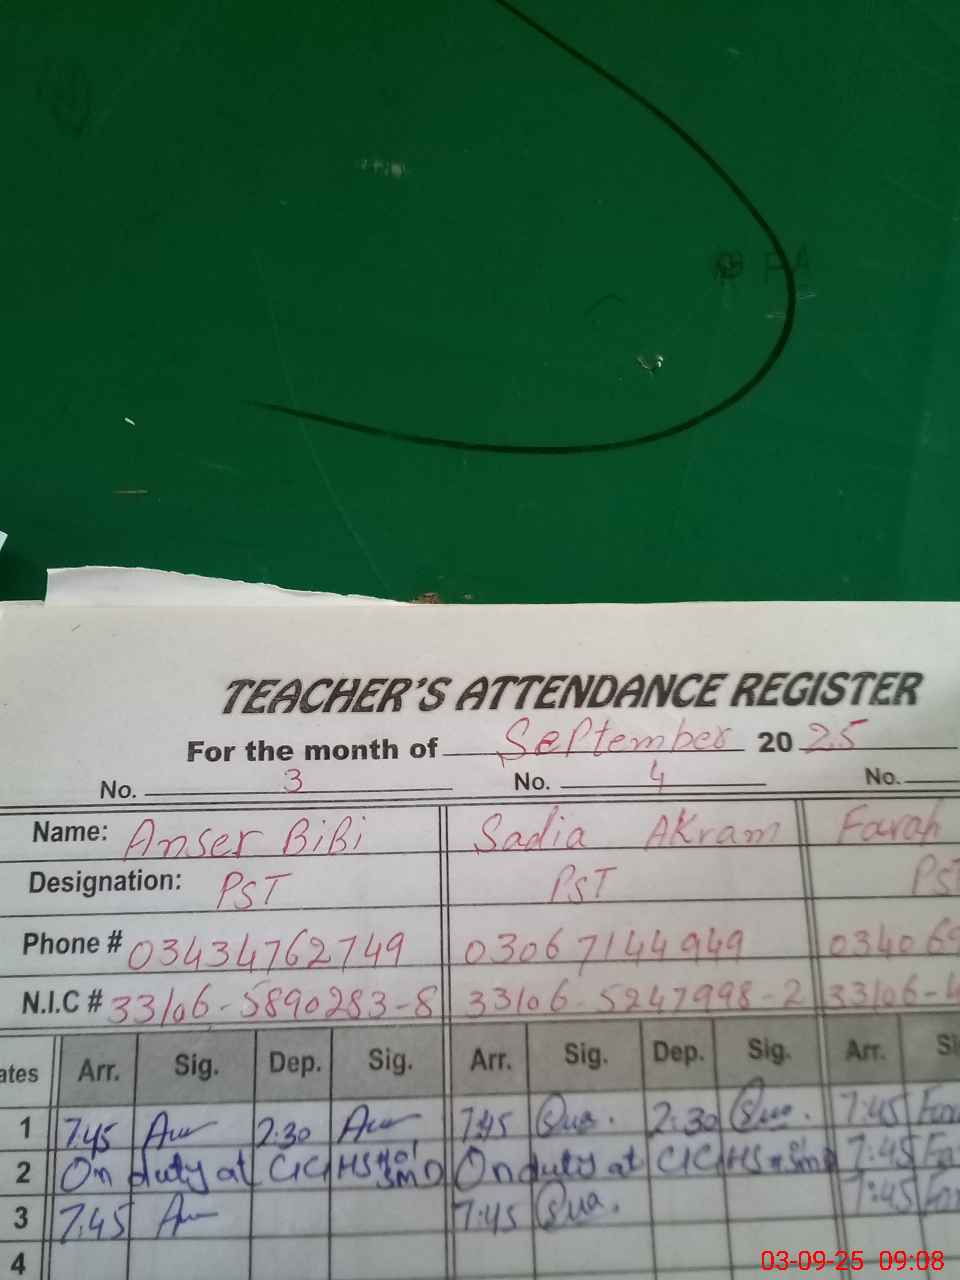 TEACHER'S ATTENDANCE REGISTER
For the month of September 20 25
No. 3 No. 4 No.
Name: Anser BiBi Sadia AKram Farah
Designation: PST PST PST
Phone # 03434762749 03067144949 034069
N.I.C # 33106-5890283-8 33106-5247998-2 33106-4
ates Arr. Sig. Dep. Sig. Arr. Sig. Dep. Sig. Arr. Si
1 7:45 2:30 7:45 2:30 7:45
2 On duty at On duty at 7:45
3 7:45 7:45 7:45
4
03-09-25 09:08